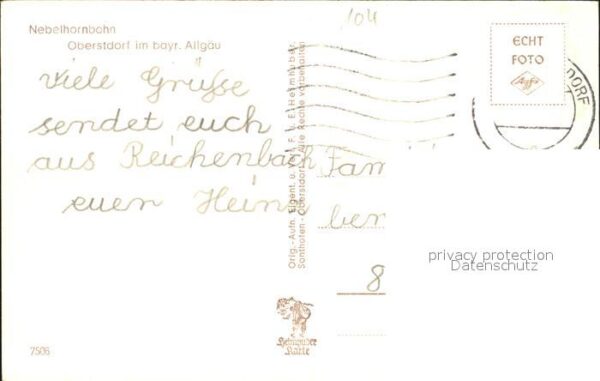 Nebelhornbahn
Oberstdorf im bayr. Allgäu
104
Viele Grüße
sendet euch
aus Reichenbach
euer Heinz
Orig.-Aufn. Eigent. u. Verl. F. u. E. Heimhuber
Sonthofen - Oberstdorf - Alle Rechte vorbehalten
ECHT
FOTO
Agfa
DORF
Fam
ber
8
privacy protection
Datenschutz
Heimhuber
Karte
7506